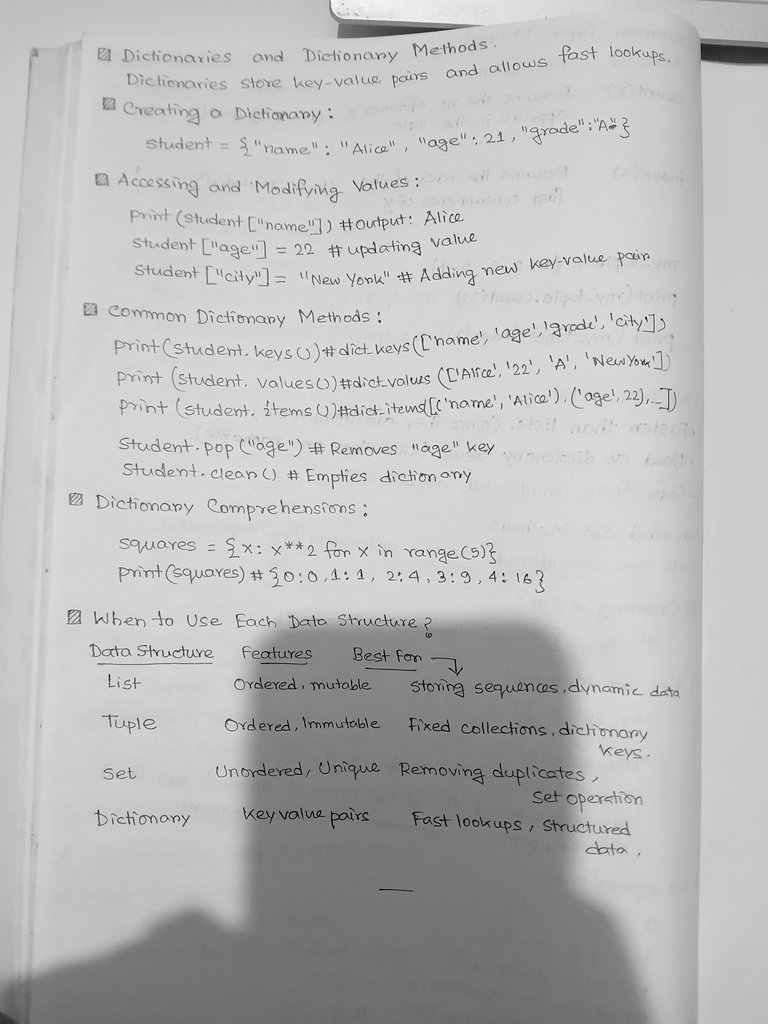 Dictionaries and Dictionary Methods.
Dictionaries store key-value pairs and allows fast lookups.
Creating a Dictionary:
student = {"name": "Alice", "age": 21, "grade": "A"}
Accessing and Modifying Values:
print(student["name"]) #output: Alice
student["age"] = 22 # updating value
student["city"] = "New York" # Adding new key-value pair
Common Dictionary Methods:
print(student.keys()) #dict_keys(['name', 'age', 'grade', 'city'])
print (student. values()) #dict_values (['Alice', '22', 'A', 'New York'])
print (student. items()) #dict_items([('name', 'Alice'), ('age', 22), ...])
student.pop ("age") # Removes "age" key
student.clear() # Empties dictionary
Dictionary Comprehensions:
squares = {x: x**2 for x in range(5)}
print(squares) # {0:0, 1:1, 2:4, 3:9, 4:16}
When to Use Each Data Structure?
Data Structure Features Best For
List Ordered, mutable Storing sequences, dynamic data
Tuple Ordered, Immutable Fixed collections, dictionary
keys.
Set Unordered, Unique Removing duplicates,
Set operation
Dictionary Key value pairs Fast lookups, structured
data,